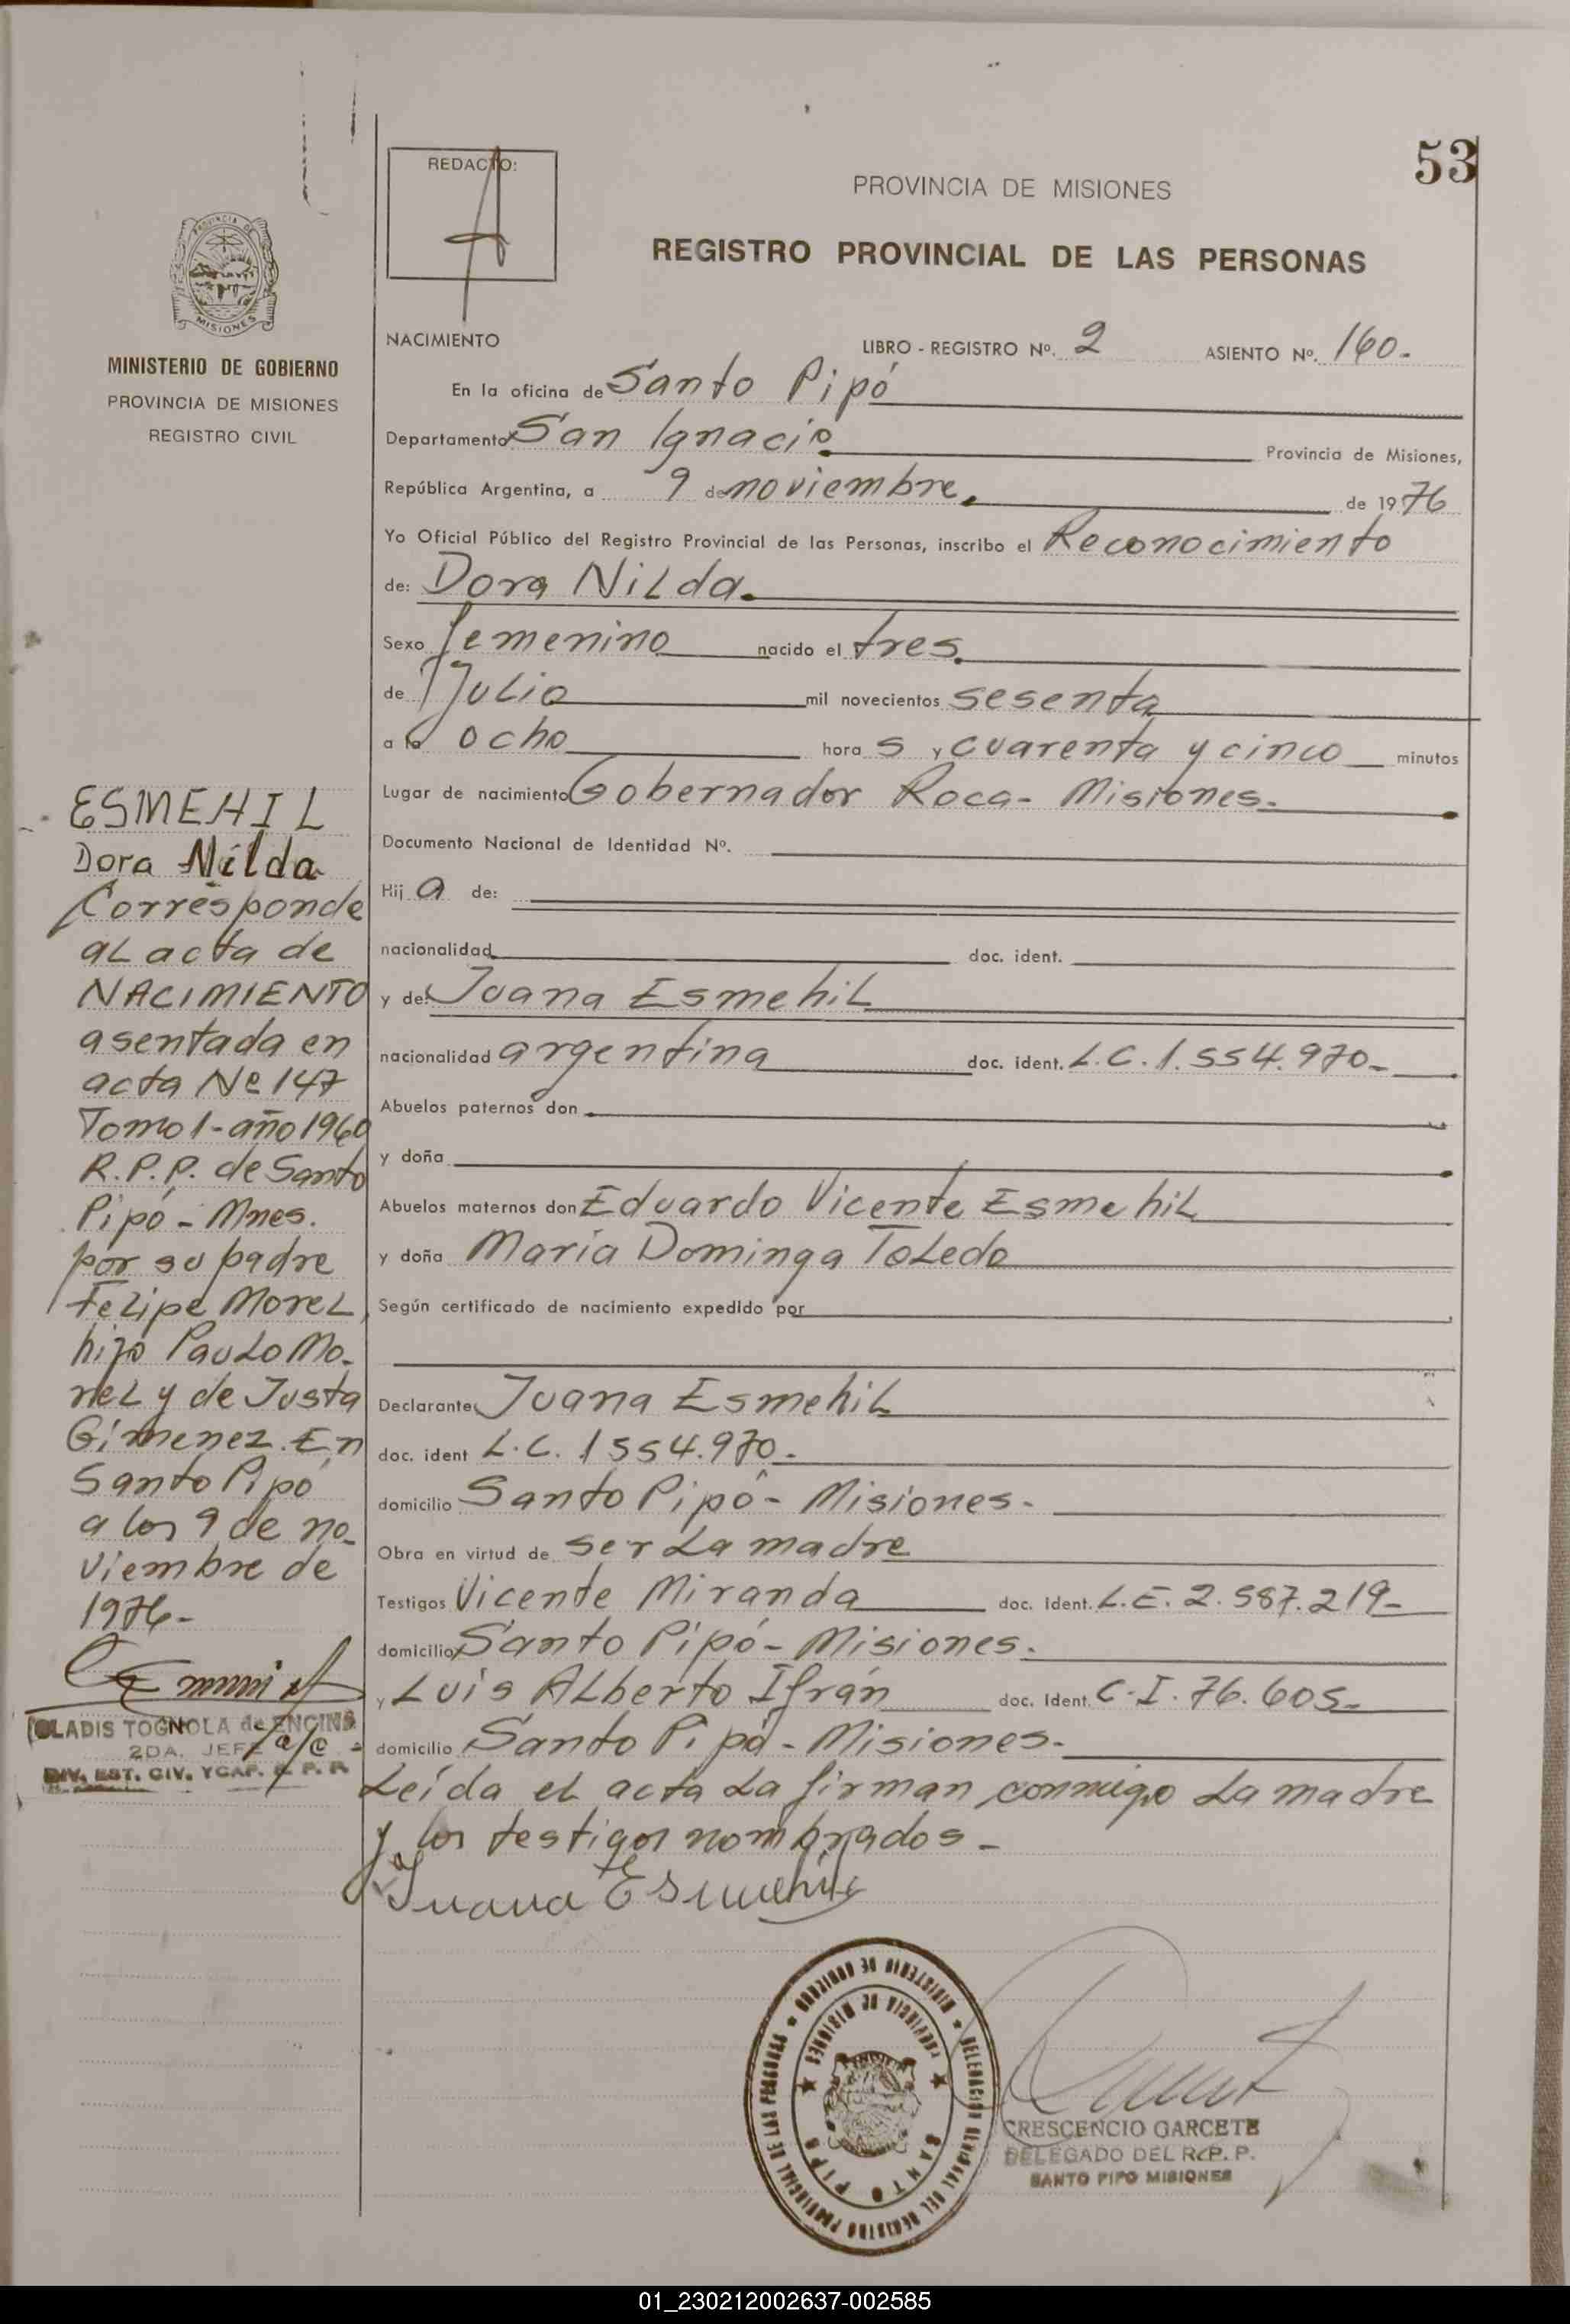 53
REDACTO:
PROVINCIA DE MISIONES
REGISTRO PROVINCIAL DE LAS PERSONAS
MISIONES
MINISTERIO DE GOBIERNO
PROVINCIA DE MISIONES
REGISTRO CIVIL
NACIMIENTO LIBRO - REGISTRO Nº. 2 ASIENTO Nº. 160.
En la oficina de Santo Pipó
Departamento San Ignacio Provincia de Misiones,
República Argentina, a 9 de noviembre. de 1976
Yo Oficial Público del Registro Provincial de las Personas, inscribo el Reconocimiento
de: Dora Nilda.
Sexo femenino nacido el tres.
de Julio mil novecientos sesenta
a la ocho hora s y cuarenta y cinco minutos
Lugar de nacimiento Gobernador Roca - Misiones.
Documento Nacional de Identidad Nº.
Hij a de:
nacionalidad doc. ident.
y de: Juana Esmehil
nacionalidad argentina doc. ident. L.C. 1.554.970-
Abuelos paternos don
y doña
Abuelos maternos don Eduardo Vicente Esmehil
y doña María Dominga Toledo
Según certificado de nacimiento expedido por
Declarante Juana Esmehil
doc. ident L.C. 1554.970-
domicilio Santo Pipó - Misiones-
Obra en virtud de ser la madre
Testigos Vicente Miranda doc. Ident. L.E. 2.587.219-
domicilio Santo Pipó - Misiones.
y Luis Alberto Ifrán doc. Ident. C.I. 76.605-
domicilio Santo Pipó - Misiones-
Leída el acta la firman conmigo la madre
y los testigos nombrados-
Juana Esmehil
ESMEHIL
Dora Nilda
Corresponde
al acta de
NACIMIENTO
asentada en
acta Nº 147
Tomo 1 - año 1960
R.P.P. de Santo
Pipó - Mnes.
por su padre
Felipe Morel,
hijo Paulo Mo-
rel y de Justa
Gimenez. En
Santo Pipó
a los 9 de no-
viembre de
1976-
GLADIS TOGNOLA de ENCINA
2DA. JEFE a/c
DIV. EST. CIV. Y CAP. R. P. P.
MINISTERIO DE GOBIERNO * DELEGACION SECCIONAL DEL REGISTRO PROVINCIAL DE LAS PERSONAS
PROVINCIA DE MISIONES
SANTO PIPO
CRESCENCIO GARCETE
DELEGADO DEL R.P.P.
SANTO PIPO MISIONES
01_230212002637-002585